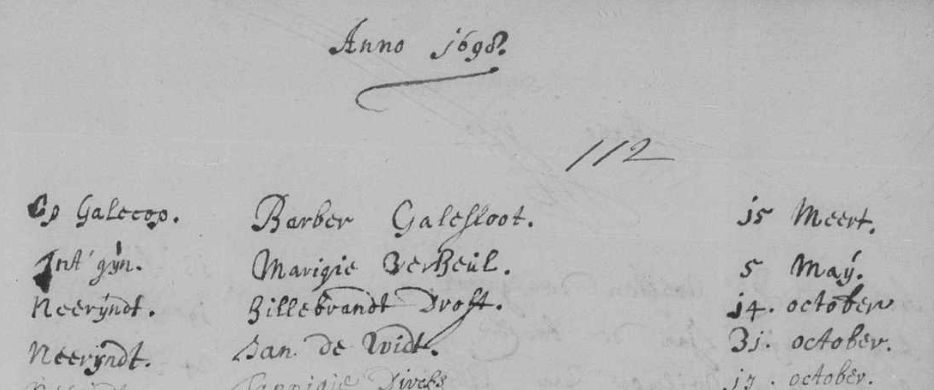 Anno 1698.
112
Op Galecop. Barber Galesloot. 15 Meert.
Int' gÿn. Marigie Verheul. 5 Maÿ.
Neerÿndt. Hillebrandt Drost. 14. october
Neerÿndt. Jan de Widt. 31. october.
Jannigie Dircks 17. october.